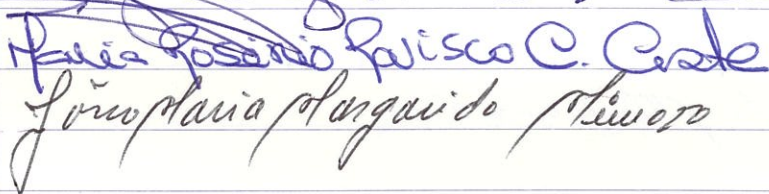 Maria Rosário Rovisco C. Costa
João Maria Margarido Mimoso